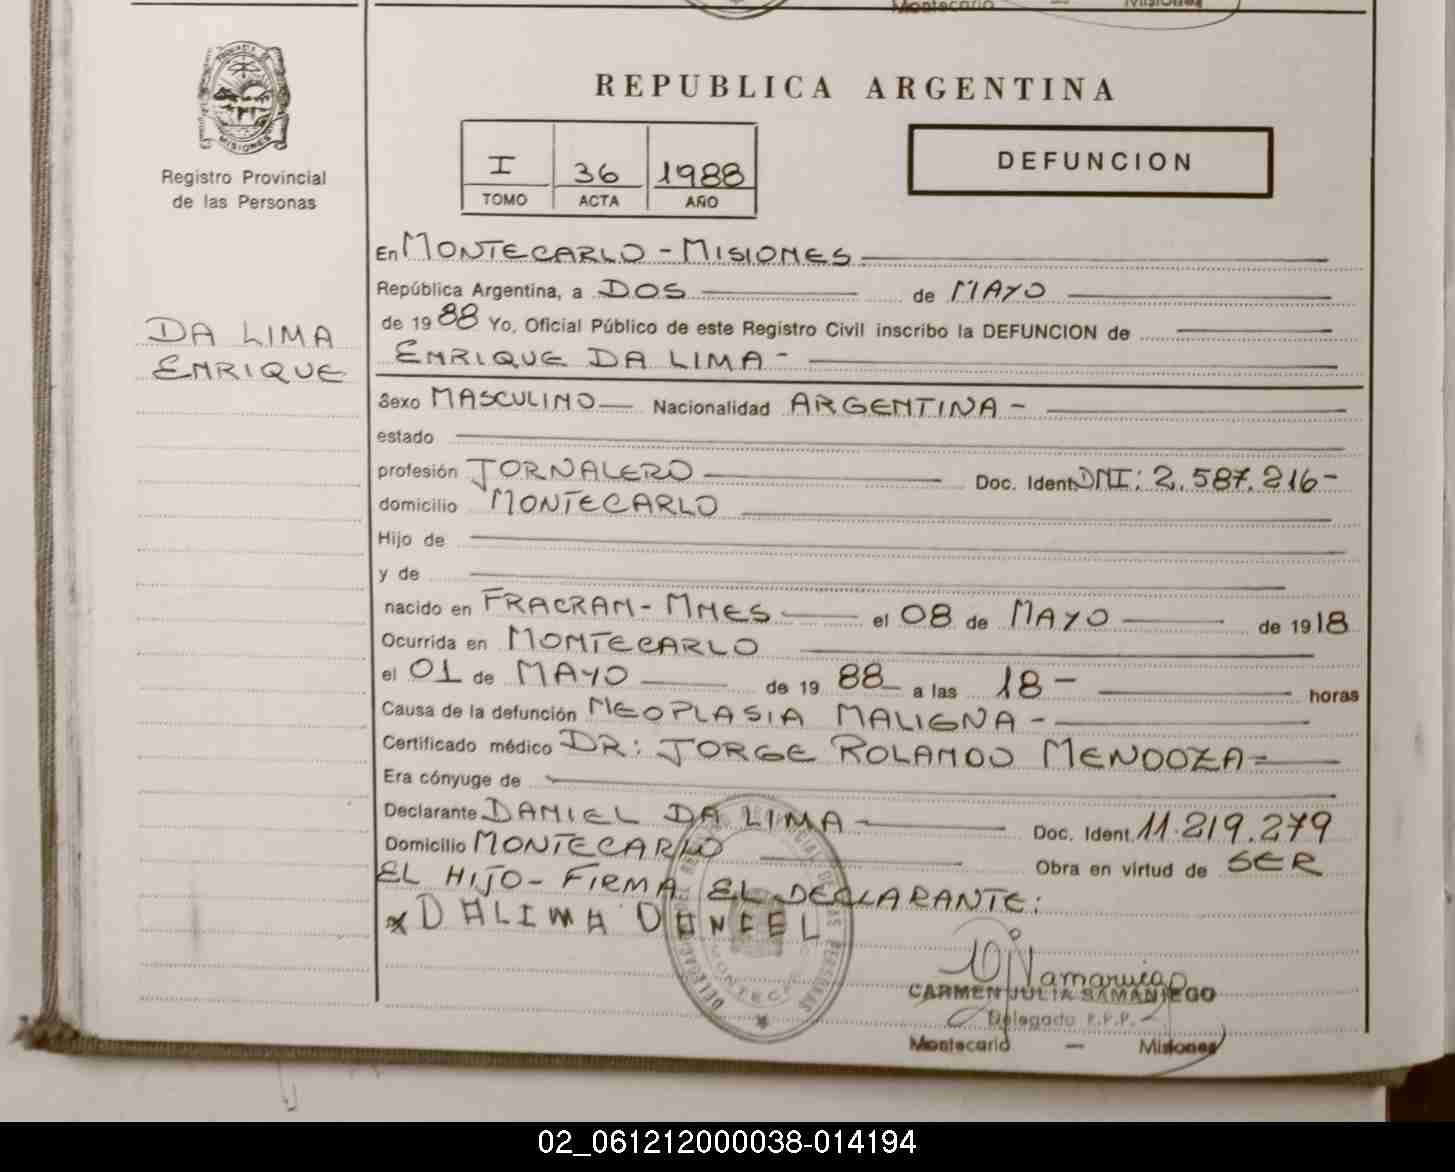 Montecarlo — Misiones
PROVINCIA DE
MISIONES
Registro Provincial
de las Personas
REPUBLICA ARGENTINA
I 36 1988
TOMO ACTA AÑO
DEFUNCION
DA LIMA
ENRIQUE
En MONTECARLO - MISIONES
República Argentina, a DOS de MAYO
de 19 88 Yo, Oficial Público de este Registro Civil inscribo la DEFUNCION de
ENRIQUE DA LIMA -
Sexo MASCULINO Nacionalidad ARGENTINA -
estado
profesión JORNALERO Doc. Ident. DNI: 2.587.216-
domicilio MONTECARLO
Hijo de
y de
nacido en FRACRAN - MNES el 08 de MAYO de 1918
Ocurrida en MONTECARLO
el 01 de MAYO de 19 88 a las 18 - horas
Causa de la defunción NEOPLASIA MALIGNA -
Certificado médico DR: JORGE ROLANDO MENDOZA -
Era cónyuge de
Declarante DANIEL DA LIMA Doc. Ident. 11.219.279
Domicilio MONTECARLO Obra en virtud de SER
EL HIJO - FIRMA EL DECLARANTE:
x DALIMA DANIEL
CARMEN JULIA SAMANIEGO
Delegado R.P.P.
Montecarlo — Misiones
02_061212000038-014194